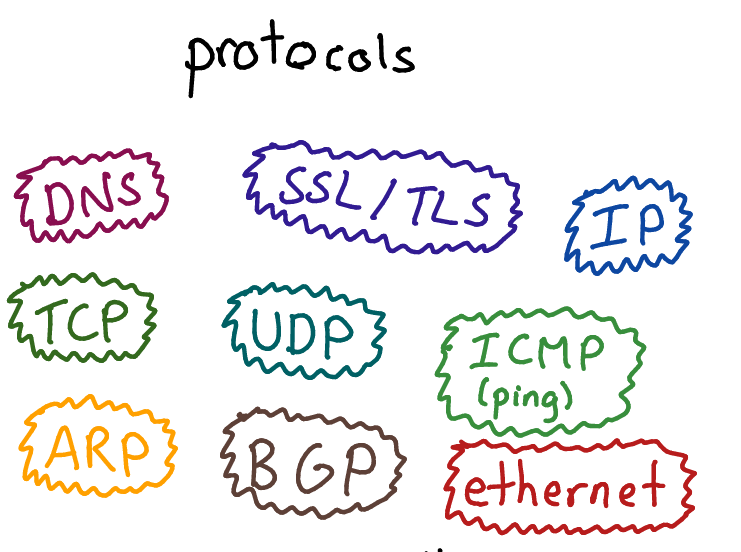 protocols
DNS
SSL/TLS
IP
TCP
UDP
ICMP
(ping)
ARP
BGP
ethernet